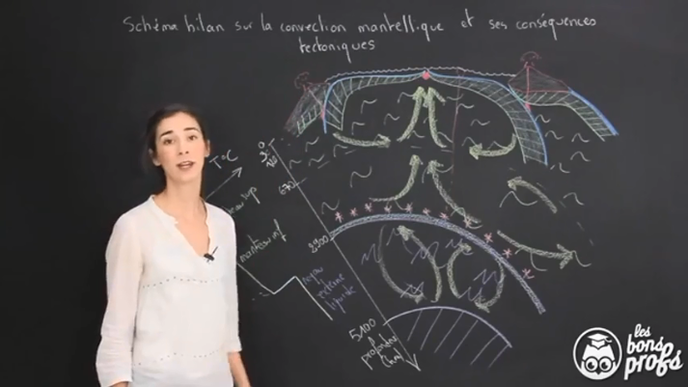 Schéma bilan sur la convection mantellique et ses conséquences
tectoniques
T°C
670
manteau inf
2900
noyau
externe
liquide
5100
profondeur
(km)
les
bons
profs